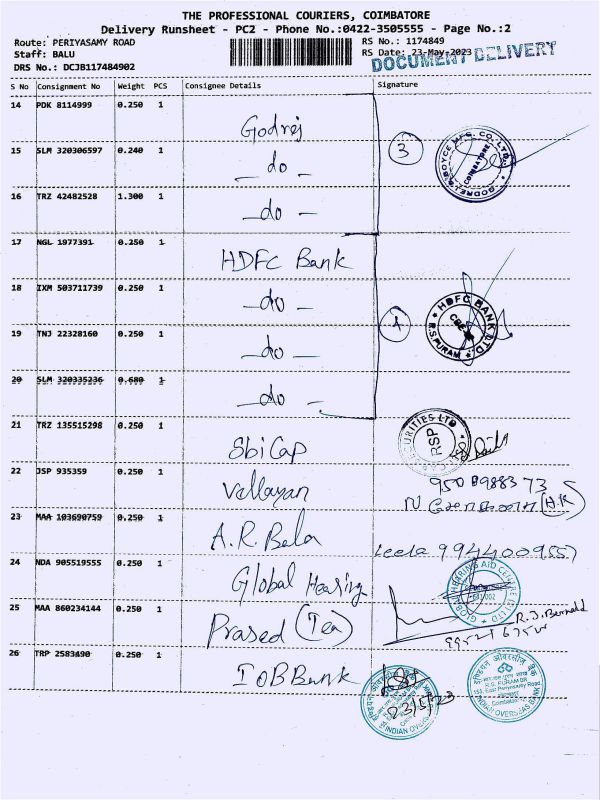 THE PROFESSIONAL COURIERS, COIMBATORE
Delivery Runsheet - PC2 - Phone No.:0422-3505555 - Page No.:2
Route: PERIYASAMY ROAD
RS No.: 1174849
Staff: BALU
RS Date: 23-May-2023
DRS No.: DCJB117484902
DOCUMENT DELIVERY
S No Consignment No Weight PCS Consignee Details Signature
14 PDK 8114999 0.250 1 Godrej
3
GODREJ & BOYCE MFG. CO. LTD. COIMBATORE
15 SLM 320306597 0.240 1 - do -
16 TRZ 42482528 1.300 1 - do -
17 NGL 1977391 0.250 1 HDFC Bank
18 IXM 503711739 0.250 1 - do -
4
HDFC BANK LTD R.S.PURAM CBE
19 TNJ 22328160 0.250 1 - do -
20 SLM 320335236 0.680 1 - do -
21 TRZ 135515298 0.250 1 Sbi Cap
SECURITIES LTD RSP
22 JSP 935359 0.250 1 Vellayan
23 MAA 103690759 0.250 1 A.R. Bala
Leela 9944009557
24 NDA 905519555 0.250 1 Global Hearing
25 MAA 860234144 0.250 1 Prasad (Tea)
R. J. Bernald
26 TRP 2583490 0.250 1 IOB Bank
23/5/23
INDIAN OVERSEAS BANK
R.S. PURAM BR
East Periyasamy Road
Coimbatore
INDIAN OVERSEAS BANK